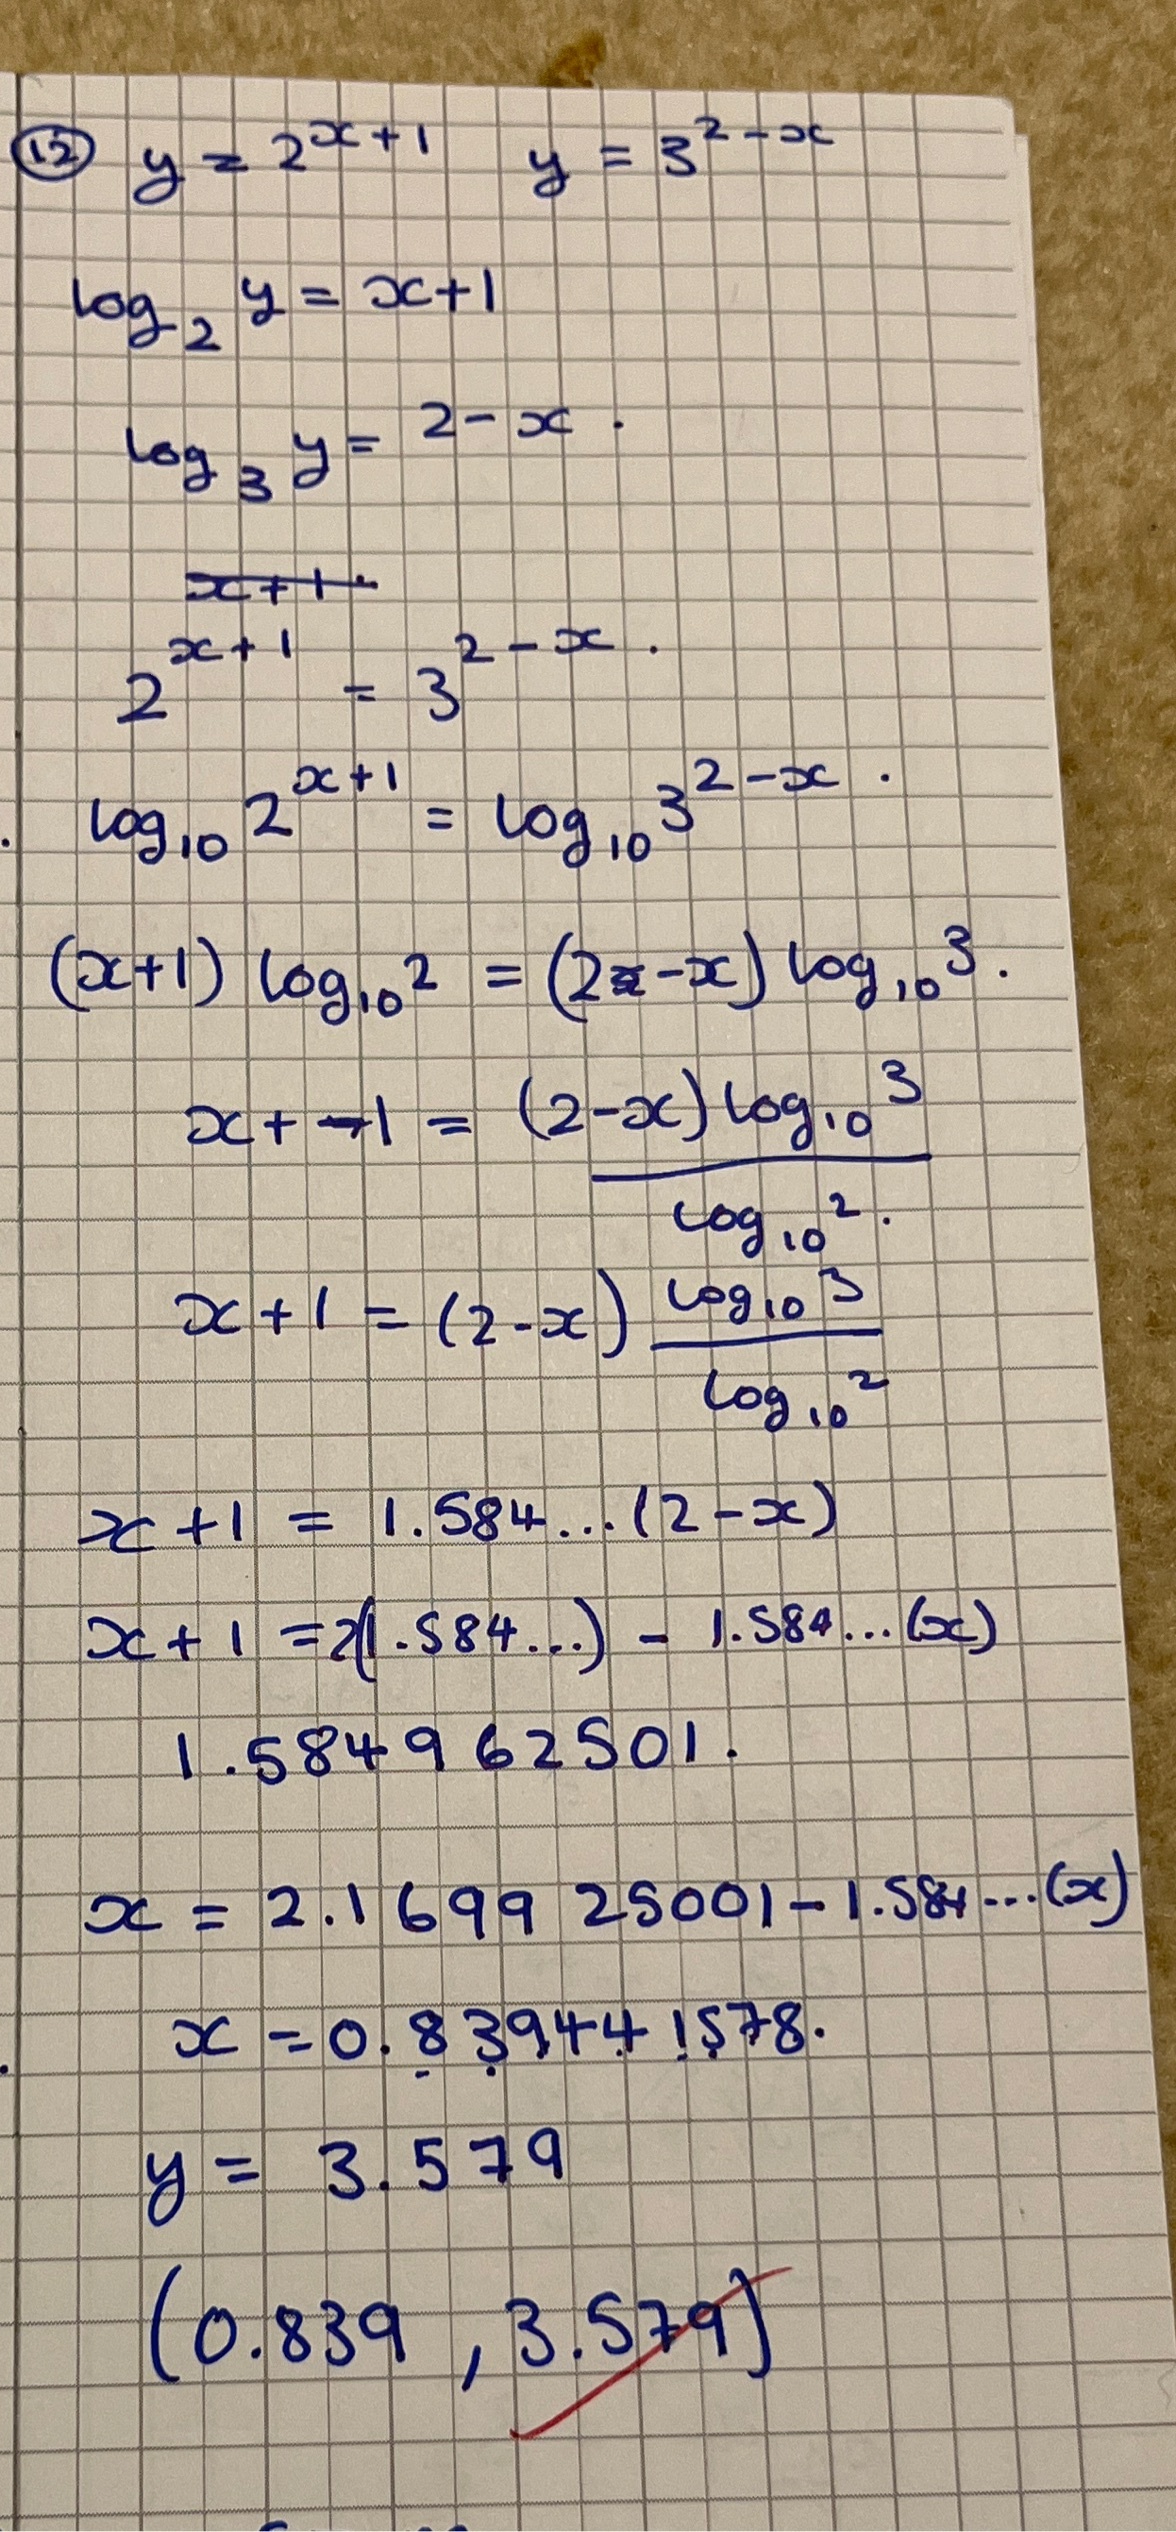 12 y = 2^{x+1} y = 3^{2-x}
log_2 y = x+1
log_3 y = 2-x.
x+1
2^{x+1} = 3^{2-x}.
log_{10} 2^{x+1} = log_{10} 3^{2-x}.
(x+1) log_{10} 2 = (2-x) log_{10} 3.
x+-1 = (2-x) log_{10} 3
log_{10} 2.
x+1 = (2-x) log_{10} 3
log_{10} 2
x+1 = 1.584...(2-x)
x+1 = 2(1.584...) - 1.584...(x)
1.584962501.
x = 2.169925001 - 1.584...(x)
x = 0.8394441578.
y = 3.579
(0.839, 3.579)